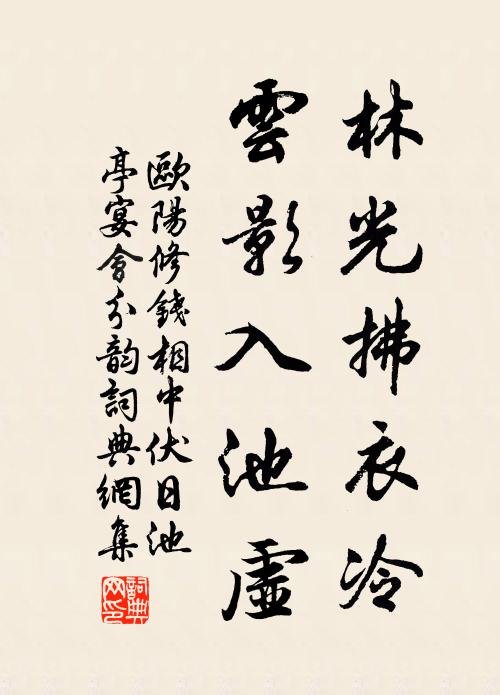 林光拂衣冷
雲影入池虛
歐陽修錢相中伏日池
亭宴會分韵詞典網集
詞典網印